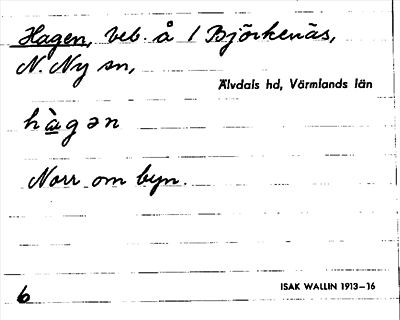 Hagen, beb. å 1 Björkenäs,
N. Ny sn,
Älvdals hd, Värmlands län
hàgən
Norr om byn.
ISAK WALLIN 1913–16
6